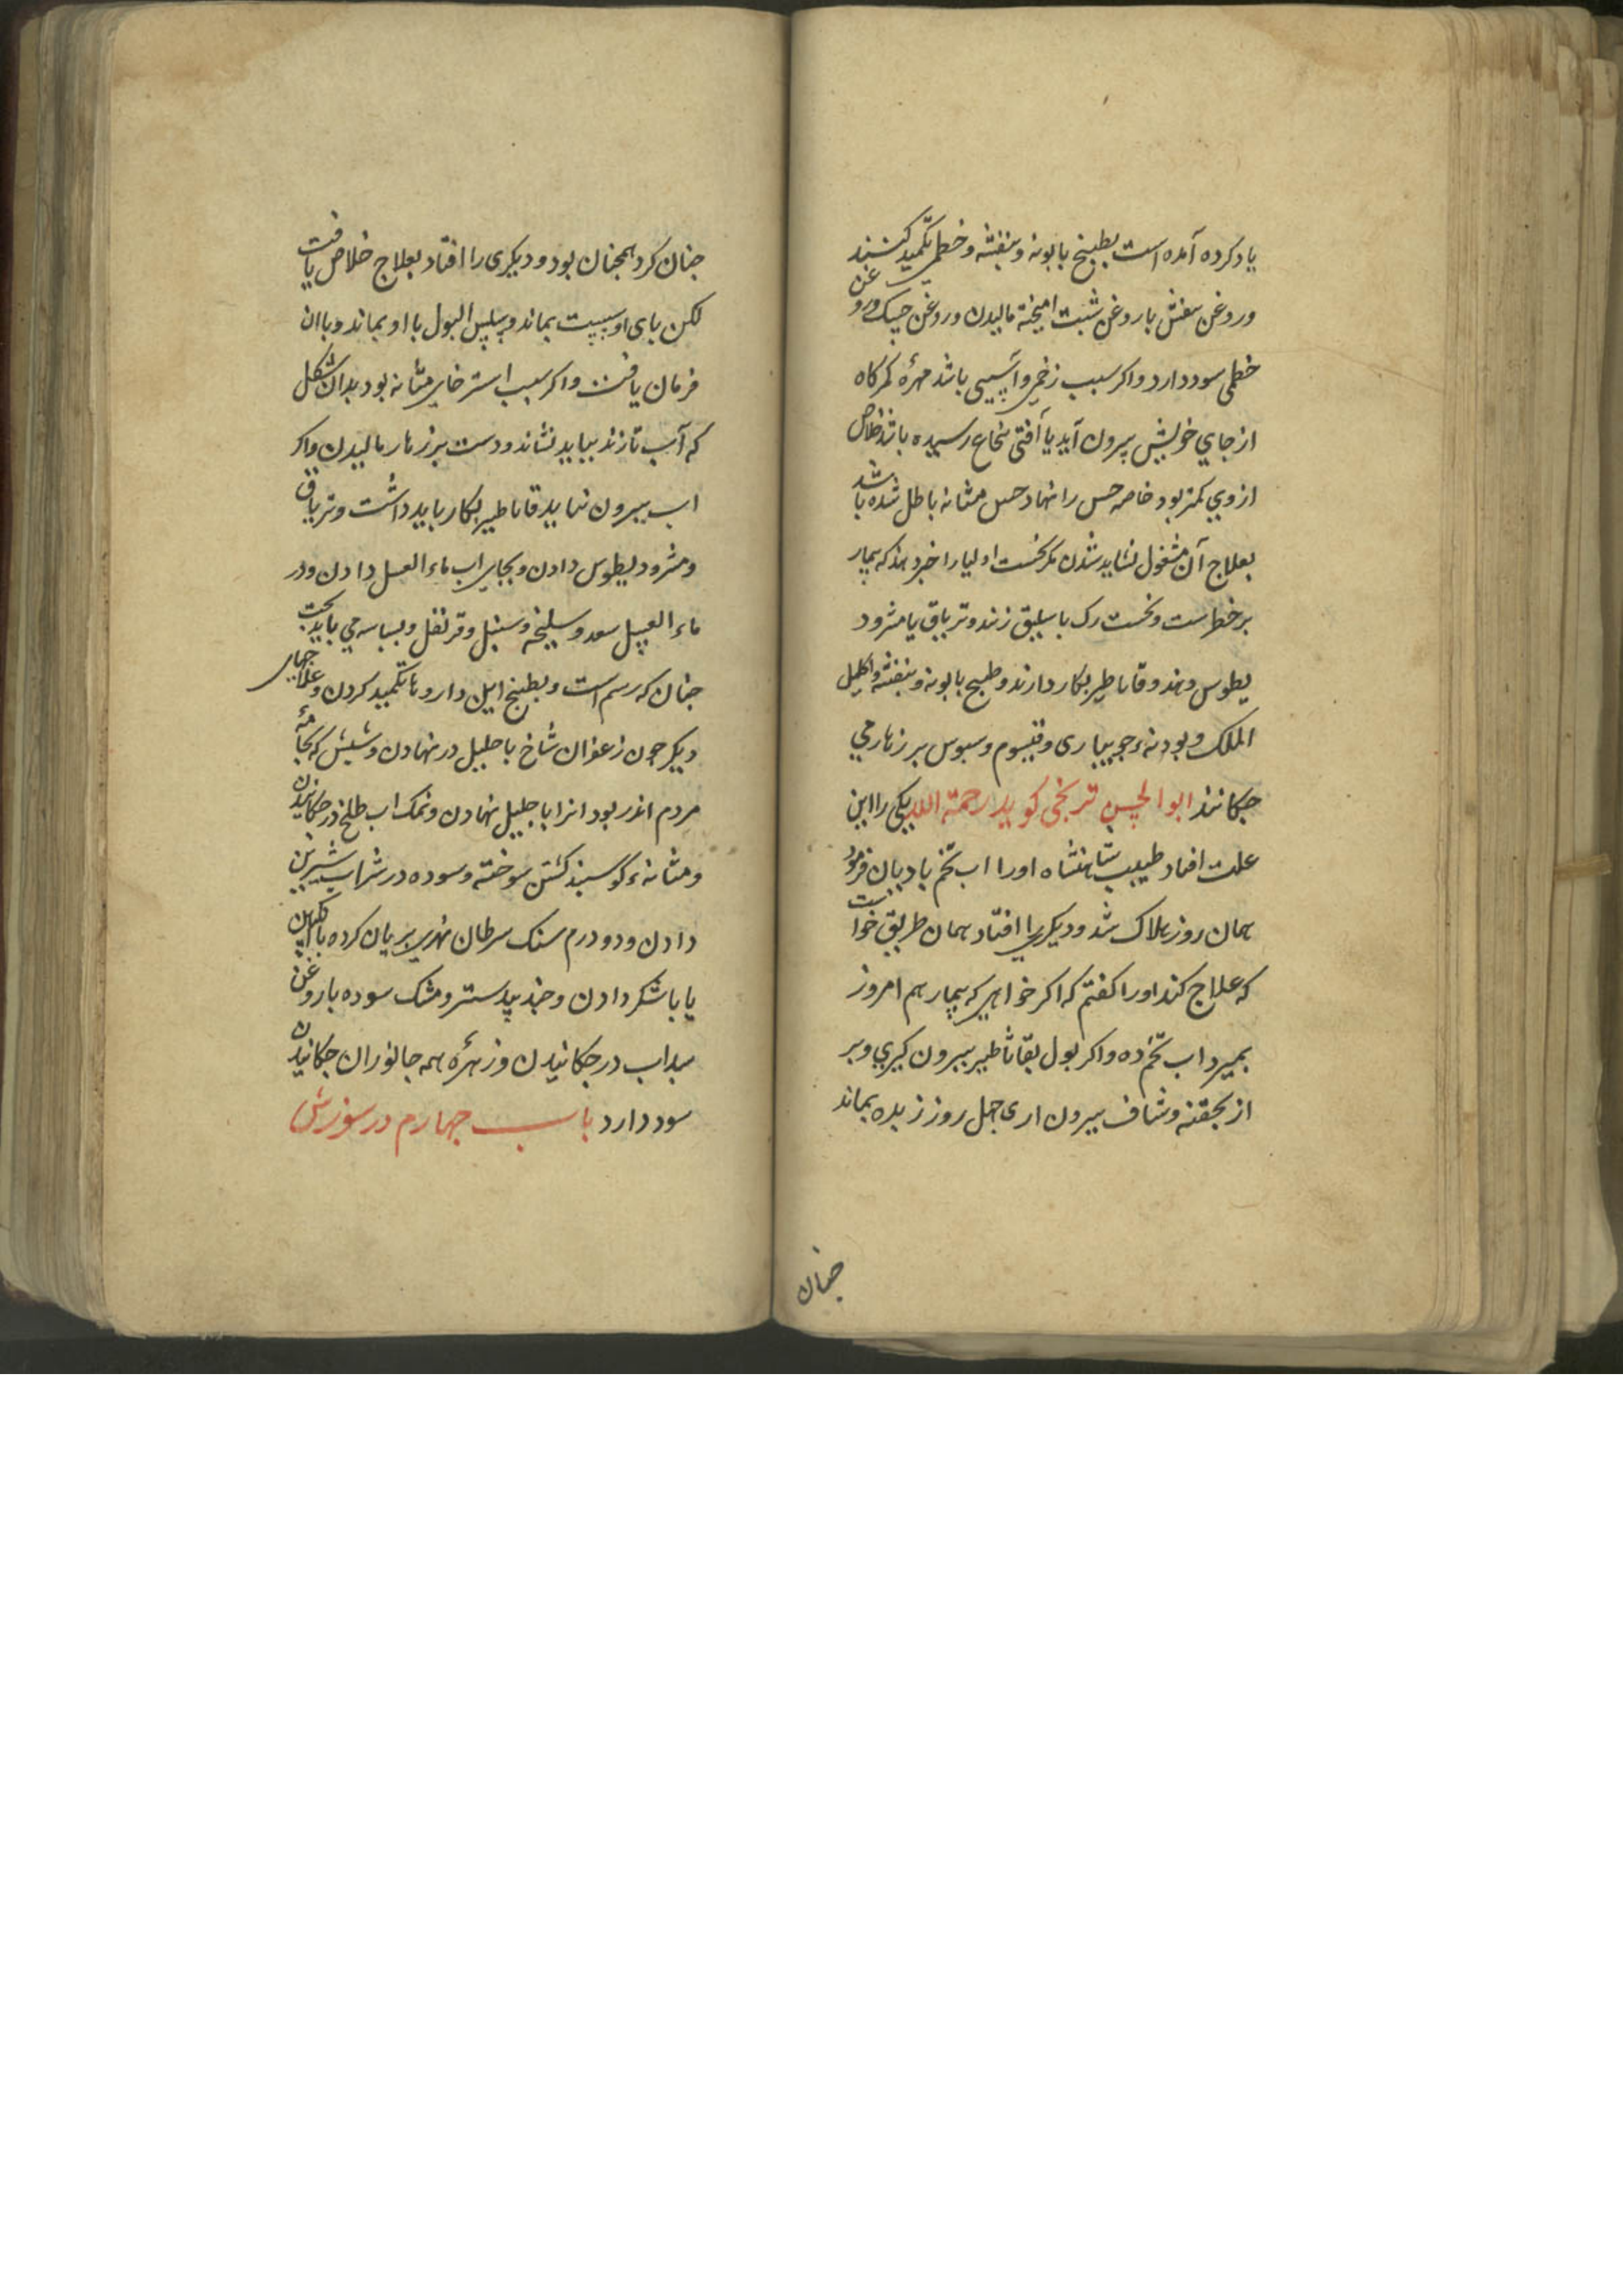 یاد کرده آمده است بطبیخ بابونه و بنفشه و خطمی تکمید کنند
و روغن بنفش با روغن شبت امیخته مالیدن و روغن خیک و روغن
خطمی سود دارد و اکر سبب زخمی و آسیبی باشد مهرهٔ کمرکاه
از جای خویش بیرون آید یا آفتی بنخاع رسیده باشد خلاص
از وی کمتر بود خاصه حس را نهاد حس مثانه باطل شده باشد
بعلاج آن مشغول نشاید شدن مکر نخست اولیا را خبر دهند که بیمار
بر خطراست و نخست رک باسلیق زنند و تریاق یا مثرود
یطوس دهند و قاثاطیر بکار دارند و طبیخ بابونه و بنفشه و اکلیل
الملک و بودنهٔ جویباری و قیسوم و سبوس بر زهار می
جکانند ابو الحسن ترنجی کوید رحمة الله یکی را این
علت افتاد طبیب شاهنشاه اورا اب تخم بادیان فرمود
همان روز هلاک شد و دیکری را افتاد همان طریق خواست
که علاج کند اورا کفتم که اکر خواهی که بیمار هم امروز
بمیرد اب تخم ده و اکر بول بقاثاطیر بیرون کیری و بر
از بحقنه و شاف بیرون اری جهل روز زنده بماند
جنان
جنان کرد همجنان بود و دیکری را افتاد بعلاج خلاص یافت
لکن بای او سست بماند و سلس البول با او بماند و با ان
فرمان یافت و اکر سبب استرخای مثانه بود بدان شکل
که آب تازند بباید نشاند و دست بر زهار مالیدن و اکر
اب بیرون نیاید قاثاطیر بکار باید داشت و تریاق
و مثرودیطوس دادن و بجای اب ماء العسل دادن و در
ماء العسل سعد و سلیخه و سنبل و قرنفل و بسباسه می باید بخت
جنان که رسم است و بطبیخ این داروها تکمید کردن و علاجهای
دیکر جون زعفران شاخ باحلیل در نهادن و شپش که بجامهٔ
مردم اندر بود انرا باحلیل نهادن و نمک اب طلخ در جکانیدن
و مثانهٔ کوسبند کشن سوخته و سوده در شراب شیرین
دادن و دو درم سنک سرطان نهری بریان کرده با انکبین
یا با شکر دادن و جند بیدستر و مشک سوده با روغن
سداب در جکانیدن و زهرهٔ همه جانوران جکانیدن
سود دارد باب جهارم در سوزش